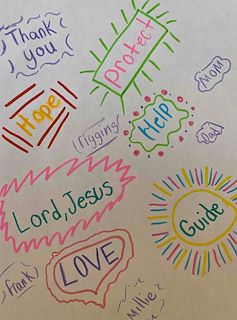 Thank
you
Protect
Hope
Help
Mom
Dad
rigging
Lord, Jesus
Guide
LOVE
Frank
Millie